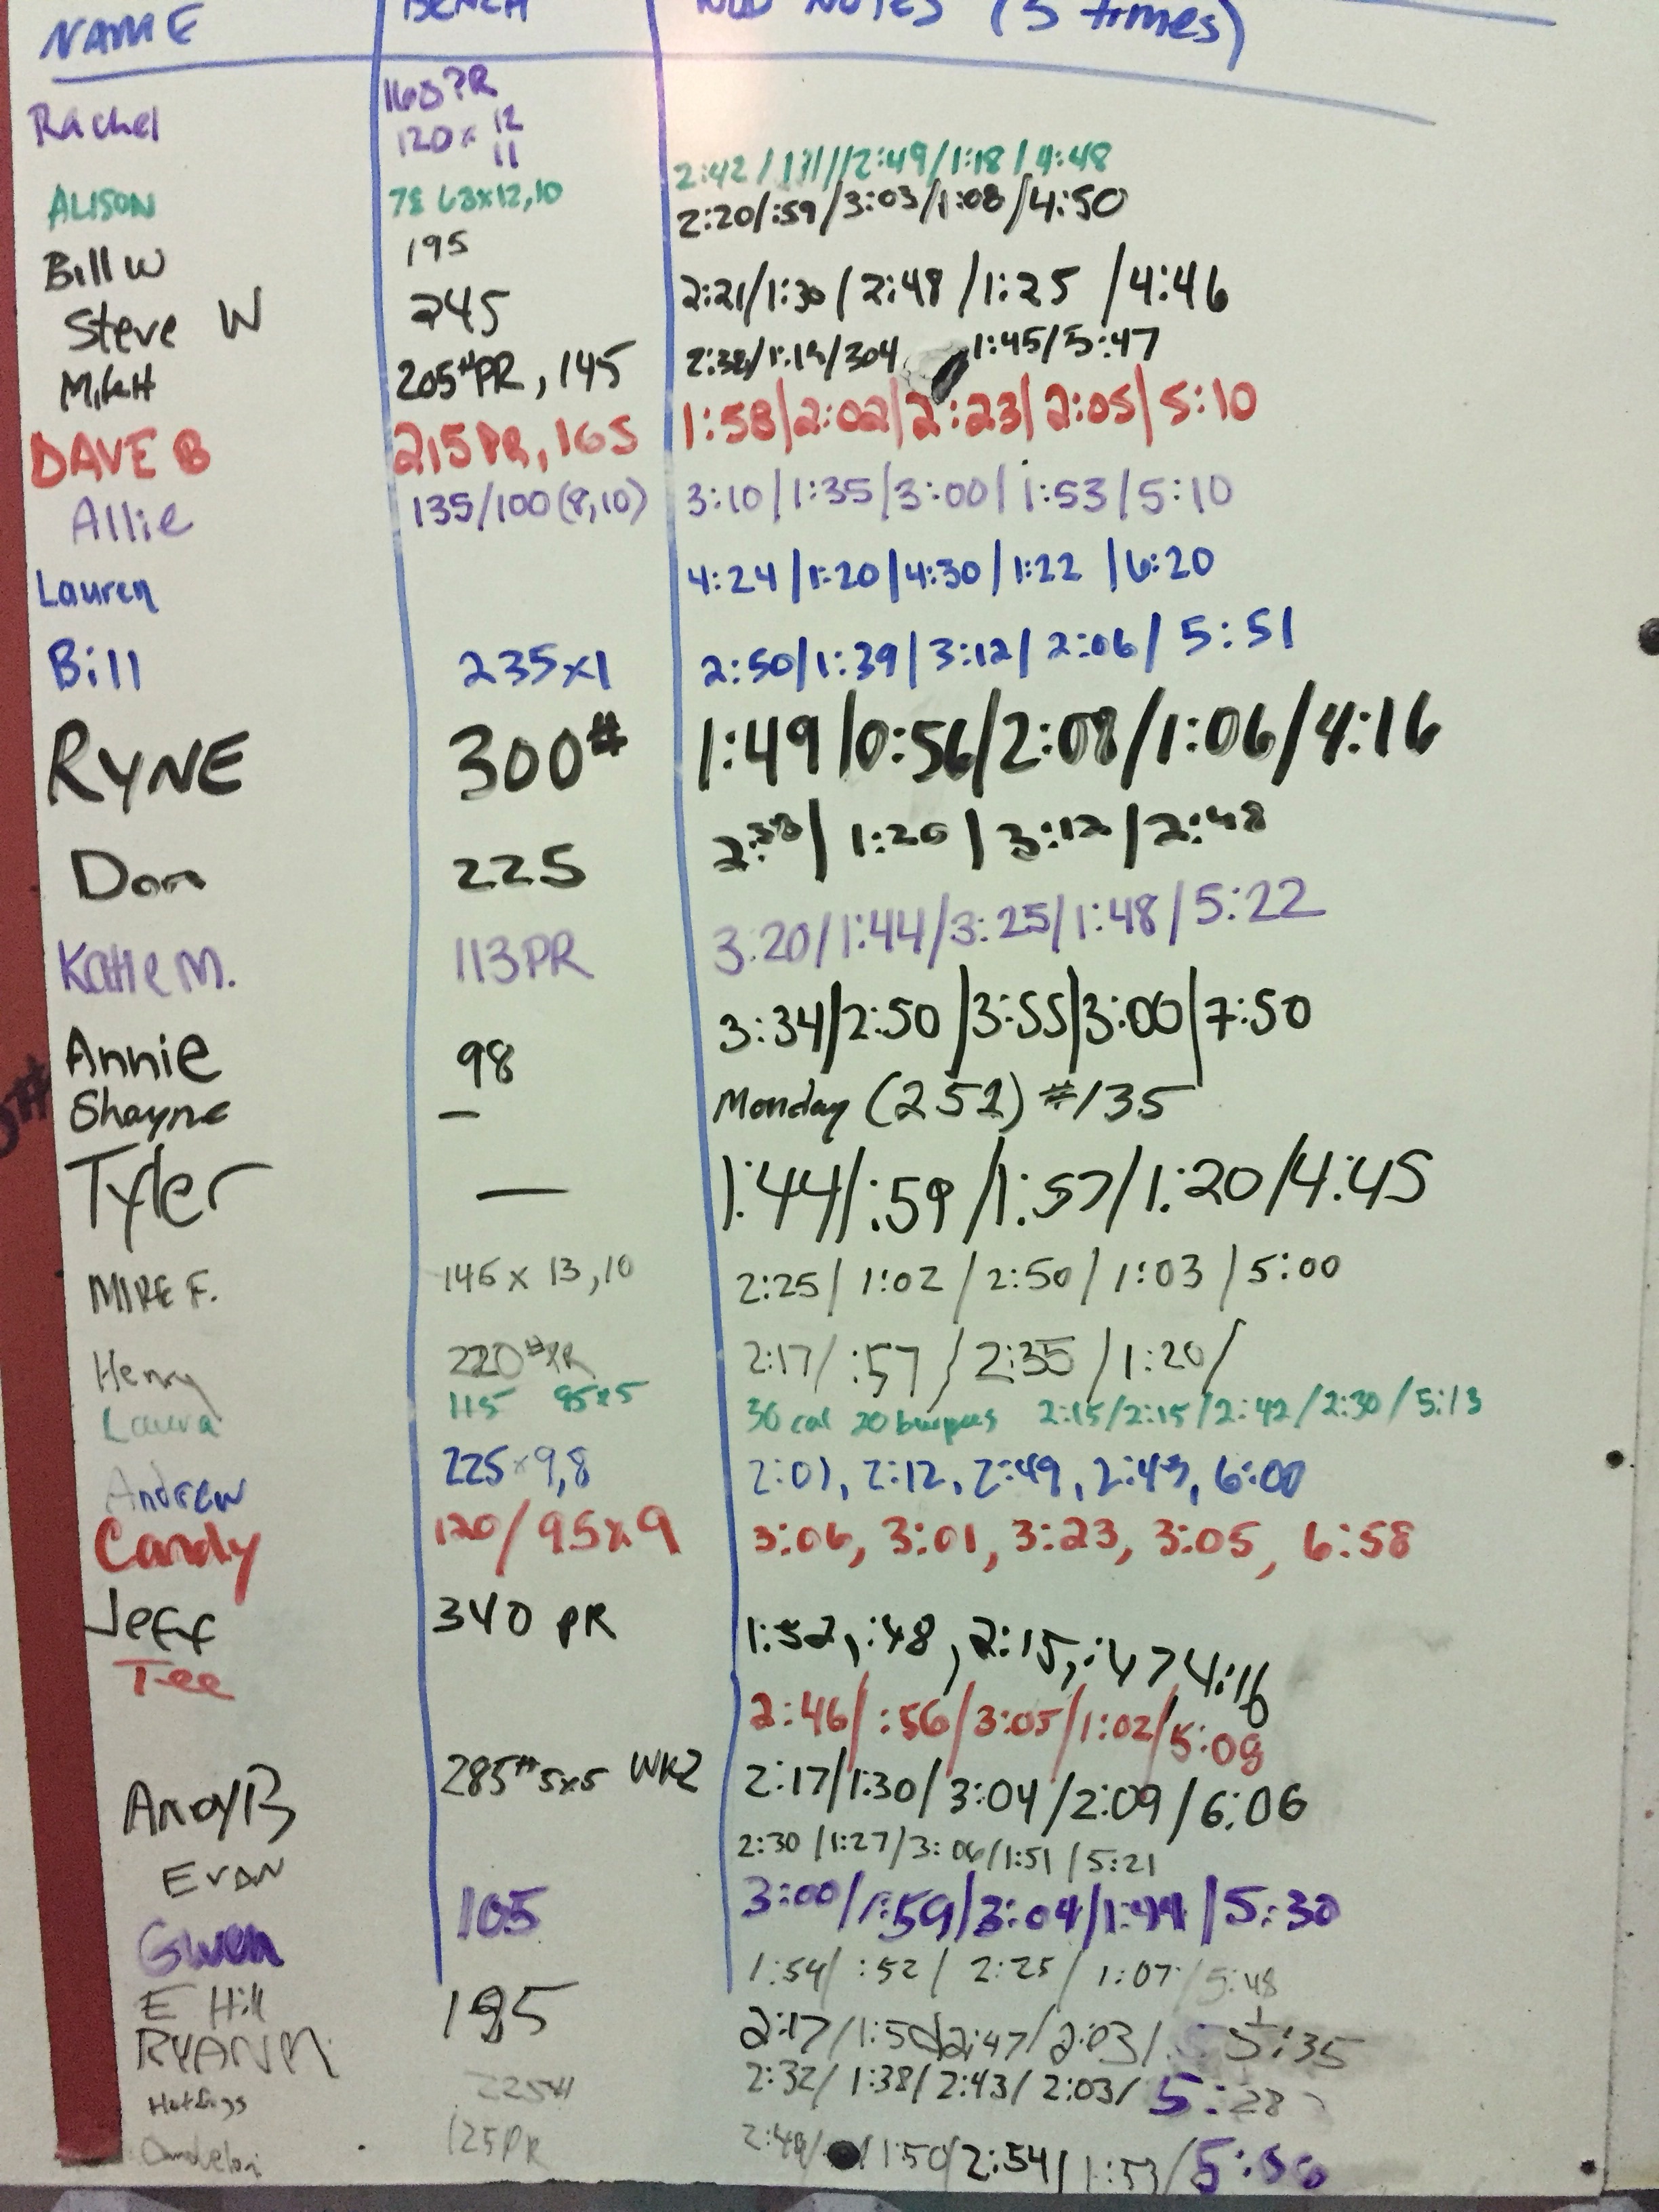 NAME BENCH WOD NOTES (5 times)
Rachel 165 PR
120 x 12
11
2:42 / 2:49/1:18/4:48
ALISON 78 63x12,10
2:20/:59/3:03/1:08/4:50
Bill W 195
2:21/1:30/2:48/1:25/4:46
Steve W 245
2:38/1:19/304 1:45/5:47
MikH 205#PR, 145
1:58/2:02/2:23/2:05/5:10
DAVE B 215PR, 165
Allie 135/100(8,10) 3:10/1:35/3:00/1:53/5:10
Lauren 4:24/1:20/4:30/1:22/6:20
Bill 235x1 2:50/1:39/3:12/2:06/5:51
RYNE 300# 1:49/0:56/2:08/1:06/4:16
Don 225 2:38/1:20/3:12/2:48
Katie M. 113PR 3:20/1:44/3:25/1:48/5:22
Annie 98 3:34/2:50/3:55/3:00/7:50
Shayne — Monday (252) #135
Tyler — 1:44/:59/1:57/1:20/4:45
MIKE F. 145 x 13,10 2:25/1:02/2:50/1:03/5:00
Henry 220#PR 2:17/:57/2:35/1:20/
Laura 115 85x5 30 cal 20 burpees 2:15/2:15/2:42/2:30/5:13
Andrew 225x9,8 2:01, 2:12, 2:49, 2:43, 6:00
Candy 120/95x9 3:06, 3:01, 3:23, 3:05, 6:58
Jeff 340 PR 1:52, :48, 2:15, :47 4:16
Tee 2:46/:56/3:05/1:02/5:08
Andy B 285#5x5 WK2 2:17/1:30/3:04/2:09/6:06
Evan 2:30/1:27/3:06/1:51/5:21
Gwen 105 3:00/1:59/3:04/1:44/5:30
E Hill 1:54/:52/2:25/1:07/5:48
RYAN M 195 2:17/1:50/2:47/2:03/5:35
Hotdogs 225# 2:32/1:38/2:43/2:03/5:28
125PR 2:48/1:50/2:54/1:53/5:56